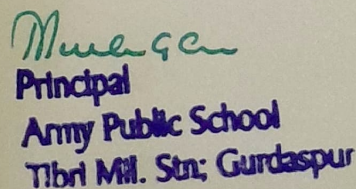 Principal
Army Public School
Tibri Mil. Stn; Gurdaspur